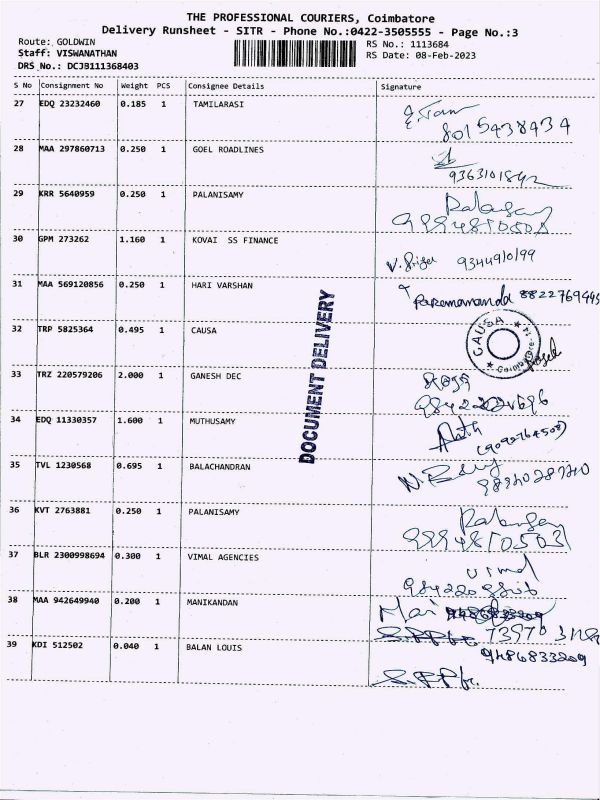 THE PROFESSIONAL COURIERS, Coimbatore
Delivery Runsheet - SITR - Phone No.:0422-3505555 - Page No.:3
Route: GOLDWIN
Staff: VISWANATHAN
DRS_No.: DCJB111368403
RS No.: 1113684
RS Date: 08-Feb-2023
S No Consignment No Weight PCS Consignee Details Signature
27 EDQ 23232460 0.185 1 TAMILARASI
8015438434
28 MAA 297860713 0.250 1 GOEL ROADLINES
29 KRR 5640959 0.250 1 PALANISAMY
30 GPM 273262 1.160 1 KOVAI SS FINANCE
9344910199
31 MAA 569120856 0.250 1 HARI VARSHAN
Paramananda 8822769445
32 TRP 5825364 0.495 1 CAUSA
CAUSA
DOCUMENT DELIVERY
33 TRZ 220579206 2.000 1 GANESH DEC
34 EDQ 11330357 1.600 1 MUTHUSAMY
35 TVL 1230568 0.695 1 BALACHANDRAN
36 KVT 2763881 0.250 1 PALANISAMY
37 BLR 2300998694 0.300 1 VIMAL AGENCIES
Vimal
38 MAA 942649940 0.200 1 MANIKANDAN
Mani
39 KDI 512502 0.040 1 BALAN LOUIS
9486833209